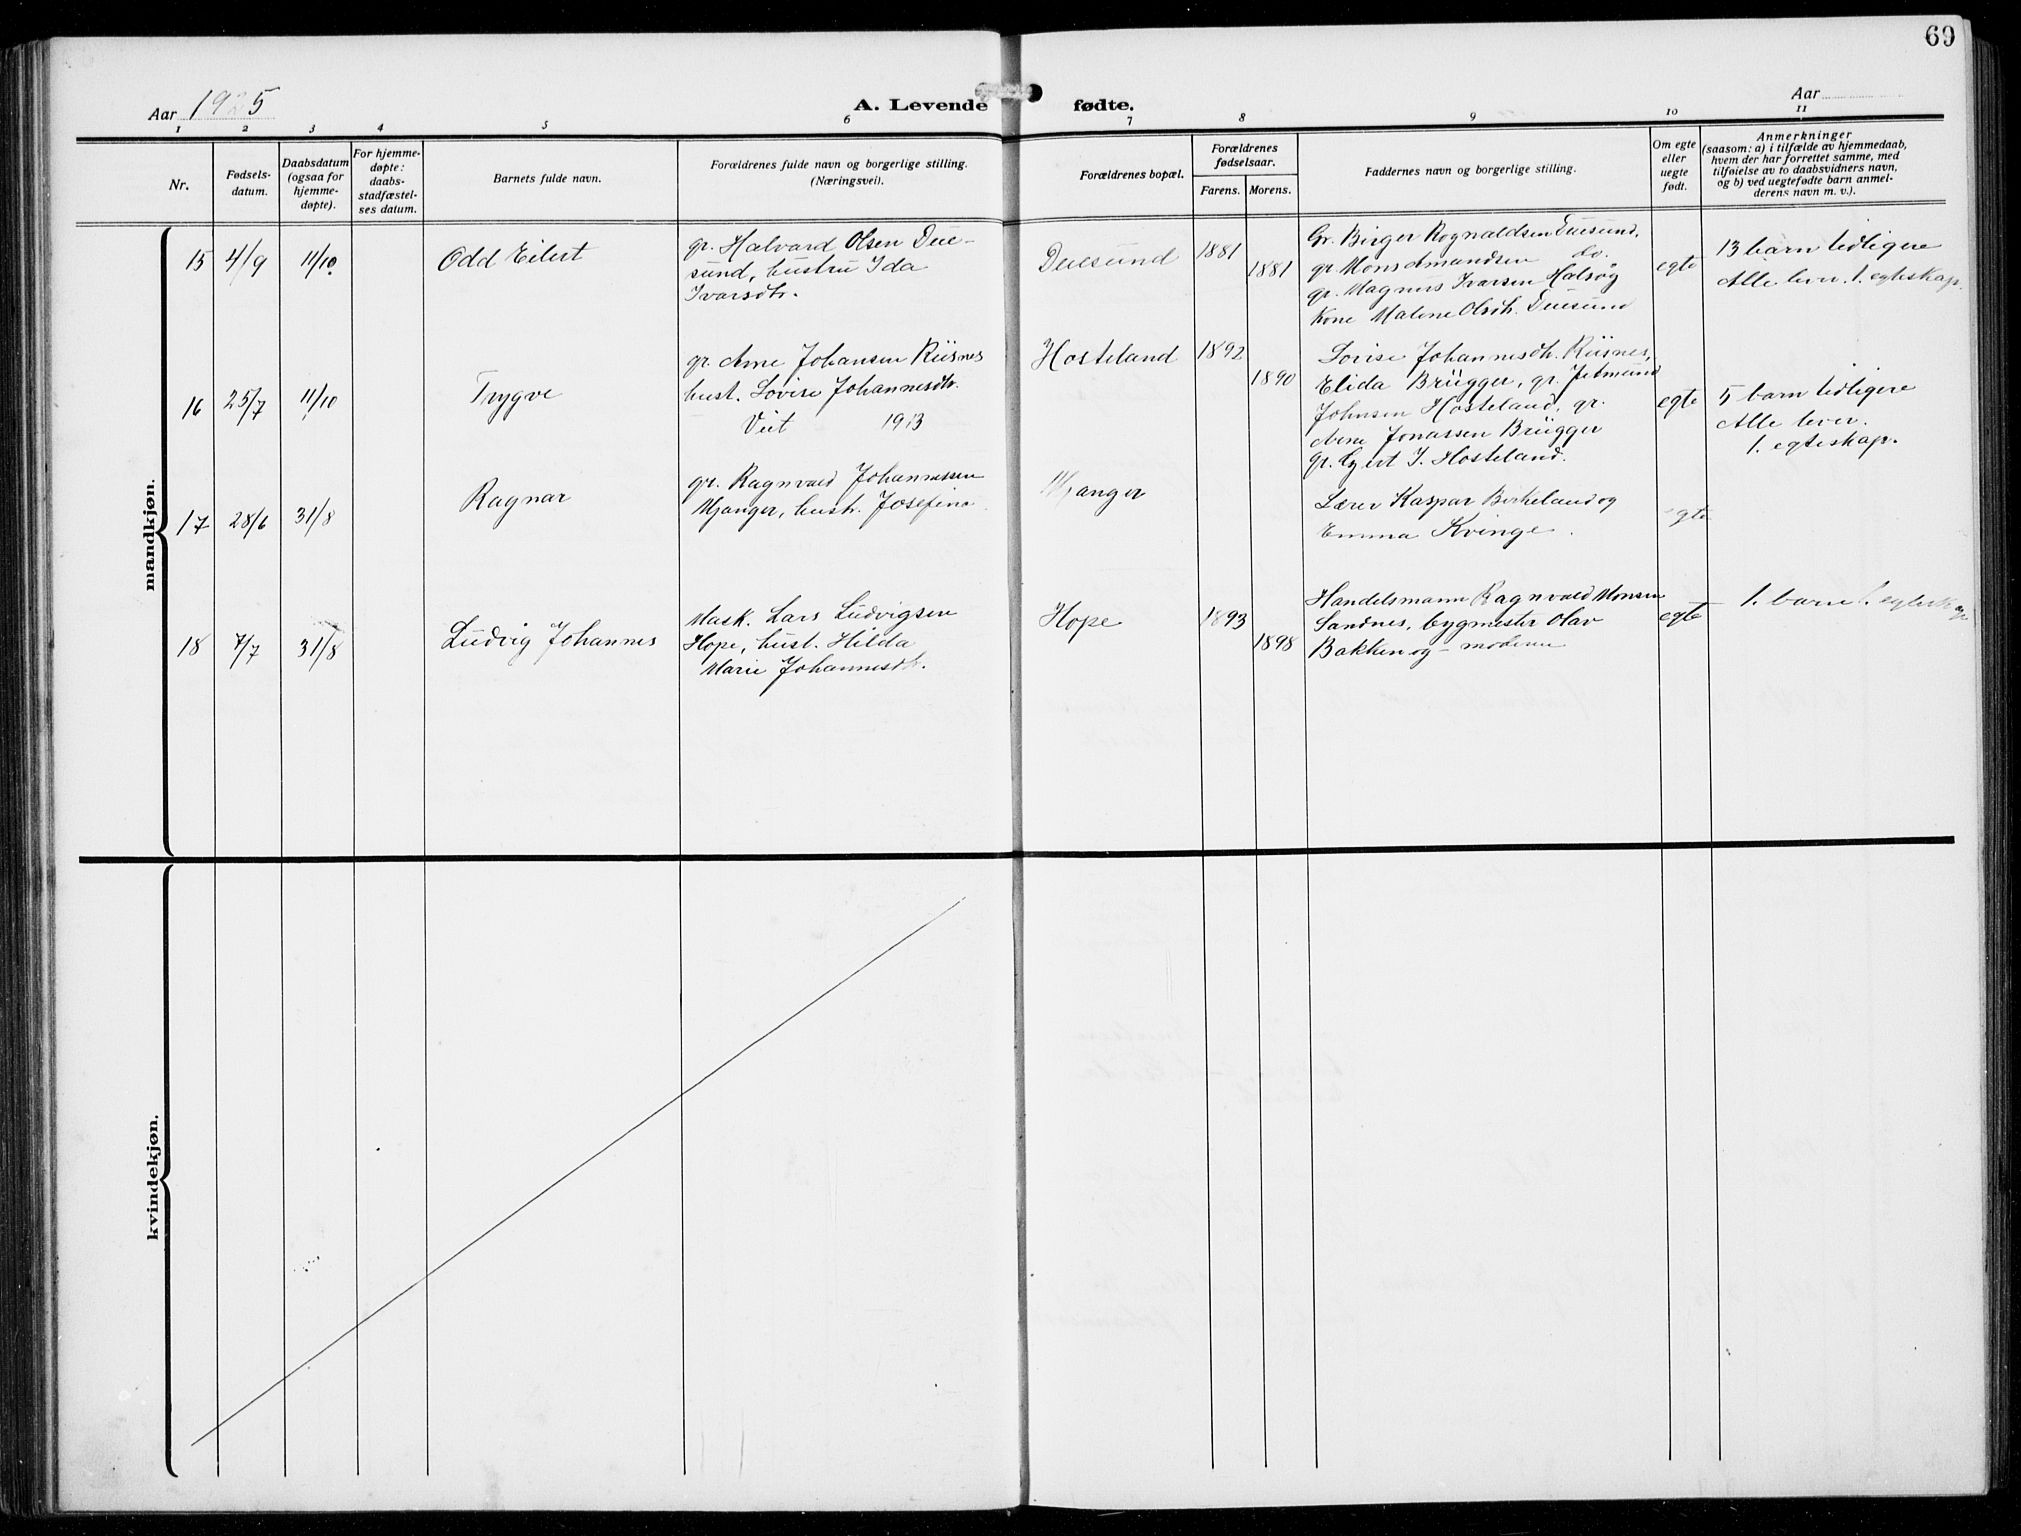 69
Aar 1925
A. Levende fødte.
Aar
1 2 3 4 5 6 7 8 9 10 11
Nr.
Fødsels-
datum.
Daabsdatum
(ogsaa for
hjemme-
døpte).
For hjemme-
døpte:
daabs-
stadfæstel-
ses datum.
Barnets fulde navn.
Forældrenes fulde navn og borgerlige stilling.
(Næringsvei).
Forældrenes bopæl.
Forældrenes
fødselsaar.
Farens. Morens.
Faddernes navn og borgerlige stilling.
Om egte
eller
uegte
født.
Anmerkninger
(saasom: a) i tilfælde av hjemmedaab,
hvem der har forrettet samme, med
tilføielse av to daabsvidners navn,
og b) ved uegtefødte barn anmel-
derens navn m. v.).
mandkjøn.
15 4/9 11/10 Odd Eilert
gr. Halvard Olsen Due-
sund, hustru Ida
Ivarsdtr.
Duesund 1881 1881
Gr. Birger Rognaldsen Duesund,
gr. Mons Amandsen do.
gr. Magnus Ivarsen Halsøg
Kone Malene Olsdtr. Duesund
egte
13 barn tidligere
Alle lever. 1. egteskap.
16 25/7 11/10 Trygve
gr. Arne Johansen Riisnes
hust. Lovise Johannesdtr.
Viet 1913
Hosteland 1892 1890
Lovise Johannesdtr. Riisnes,
Elida Brügger, gr. Petmund
Johnsen Hosteland, gr.
Arne Jonassen Brügger
gr. Gjert J. Hosteland.
egte
5 barn tidligere
Alle lever.
1. egteskap.
17 28/6 31/8 Ragnar
gr. Ragnvald Johannessen
Mjanger, hustr. Josefine
Mjanger
Lærer Kaspar Birkeland og
Emma Kvinge.
egte
18 7/7 31/8 Ludvig Johannes
Mask. Lars Ludvigsen
Hope, hust. Hilda
Marie Johannesdtr.
Hope 1893 1898
Handelsmann Ragnvald Monsen
Sandnes, bygmester Olav
Bakken og - moderen
egte
1. barn 1. egteskap
kvindekjøn.